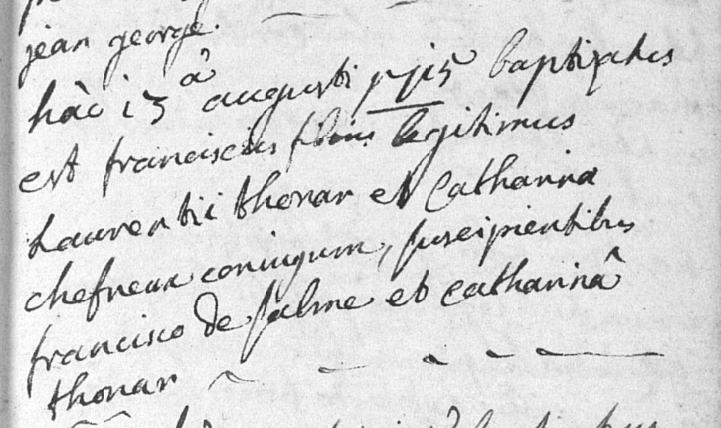 jean george.
hâc 13â augusti 1715 baptizatus
est franciscus filius legitimus
Laurentii thonar et Catharina
chefneux coniugum, suscipientibus
francisco de salme et catharinâ
thonar